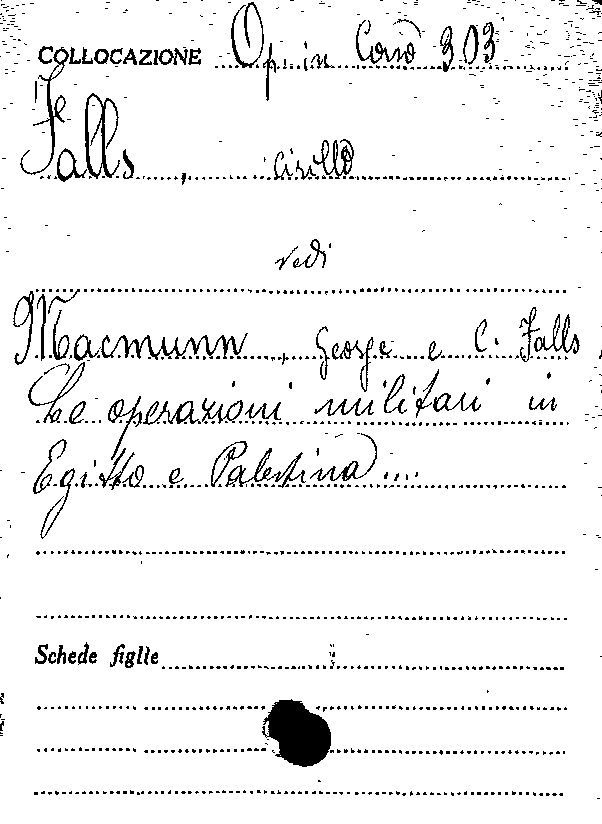 COLLOCAZIONE Op. in Corso 303
Falls, Cirillo
vedi
Macmunn, George e C. Falls
Le operazioni militari in
Egitto e Palestina....
Schede figlie